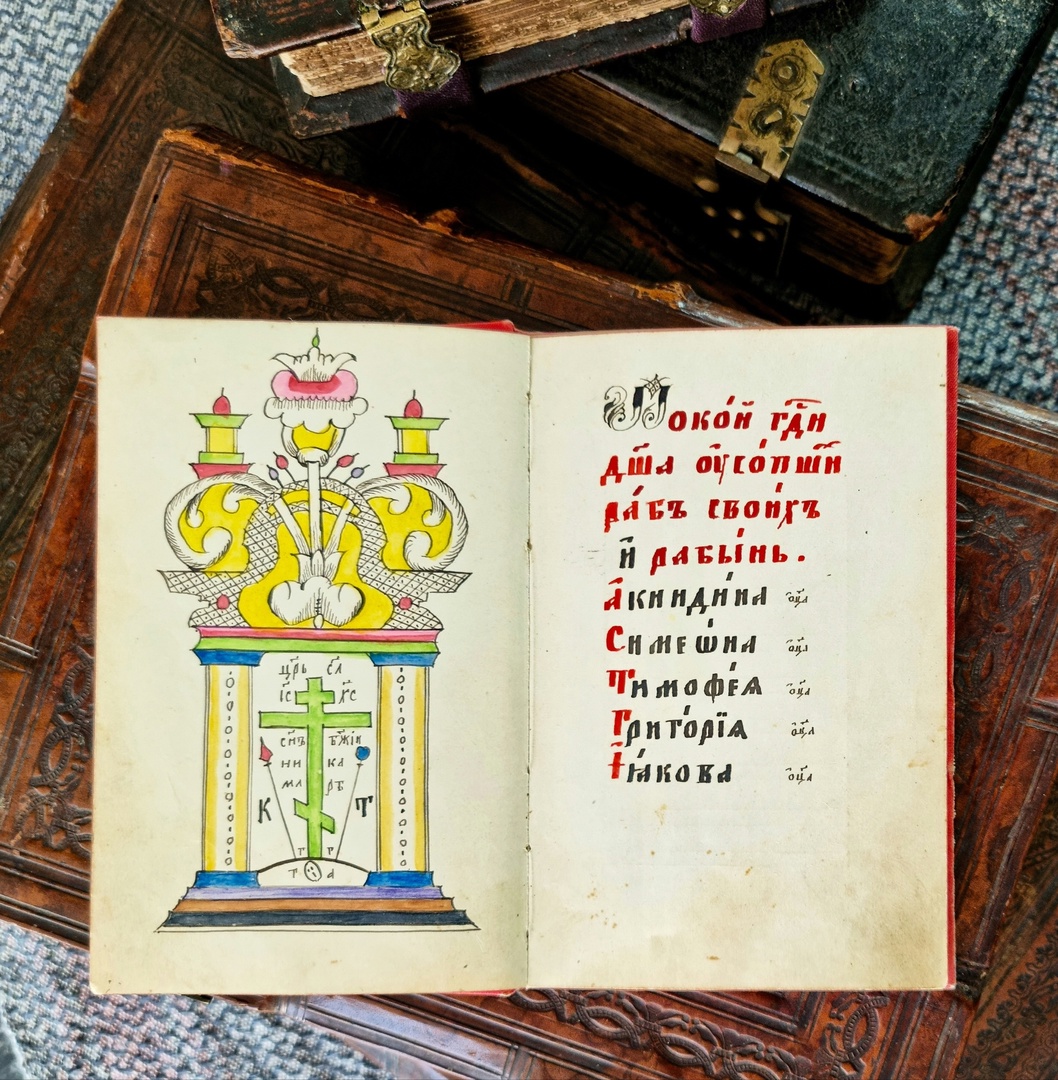 цр҃ь сл҃
іс҃ хс҃
сн҃ъ бж҃іи
ни ка
ма рѣ
К Т
г г
г а
Поко́й гдⷭ҇и
дш҃а ᲂу҆со́пшиⷯ
ра́бъ свои́хъ
и҆ рабы́нь.
А҆кинди́на оц҃а
Симеѡ́на оц҃а
Тимоѳе́а оц҃а
Григо́рїа оц҃а
І҆а́кова оц҃а